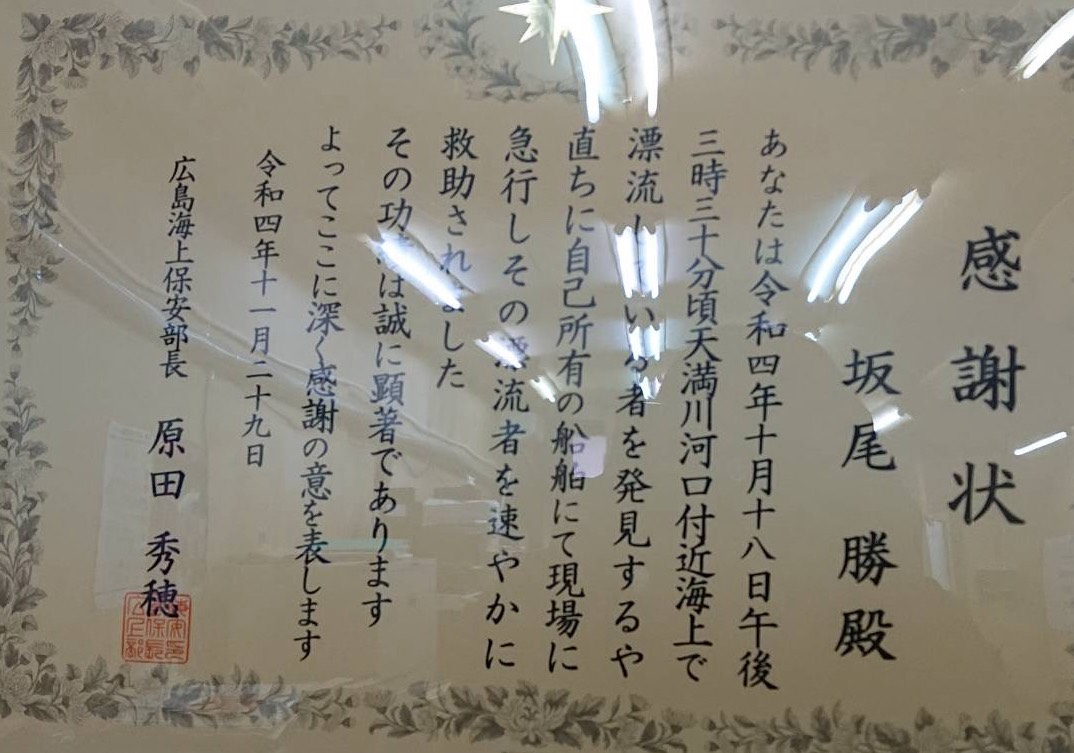 感謝状
坂尾 勝殿
あなたは令和四年十月十八日午後
三時三十分頃天満川河口付近海上で
漂流している者を発見するや
直ちに自己所有の船舶にて現場に
急行しその漂流者を速やかに
救助されました
その功は誠に顕著であります
よってここに深く感謝の意を表します
令和四年十一月二十九日
広島海上保安部長 原田 秀穂